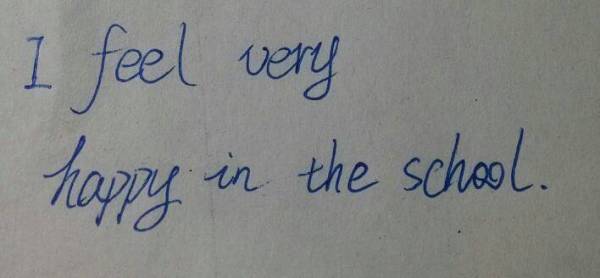 I feel very
happy in the school.